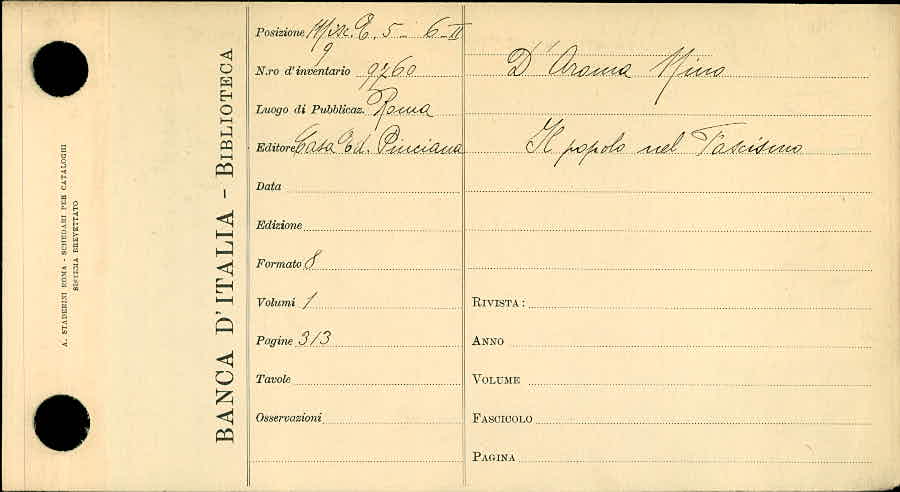 A. STADERINI ROMA - SCHEDARI PER CATALOGHI
SISTEMA BREVETTATO
BANCA D'ITALIA - BIBLIOTECA
Posizione Misc. E. 5 - 6 - II
9
N.ro d'inventario 9760
Luogo di Pubblicaz. Roma
Editore Casa Ed. Pinciana
Data
Edizione
Formato 8
Volumi 1
Pagine 313
Tavole
Osservazioni
D'Aroma Nino
Il popolo nel Fascismo
RIVISTA:
ANNO
VOLUME
FASCICOLO
PAGINA